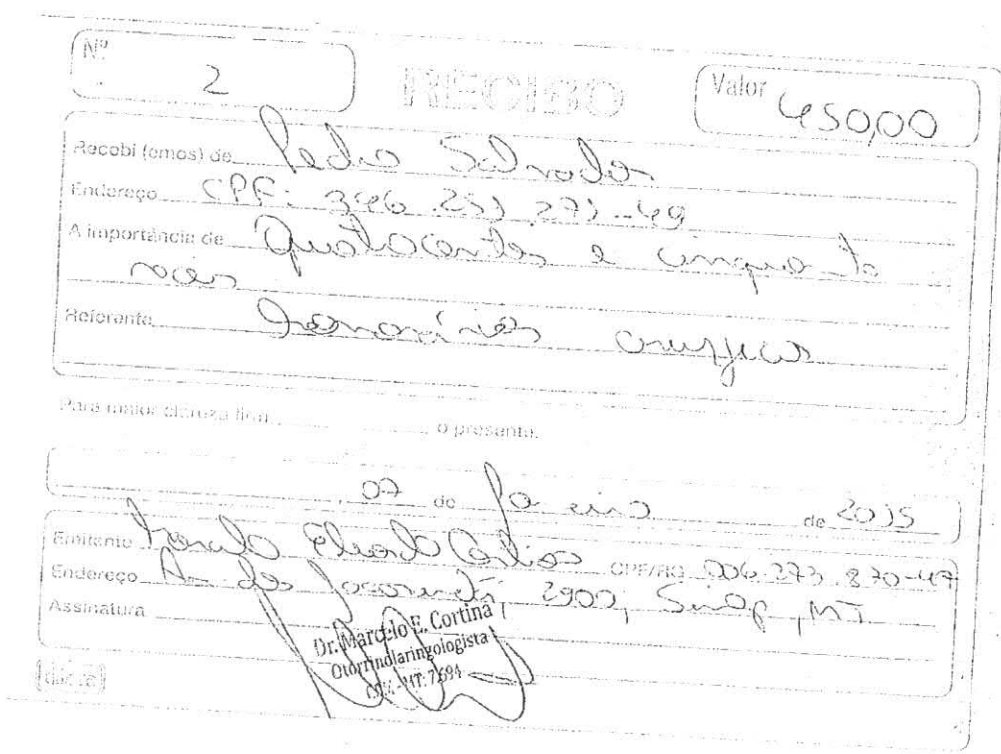 Nº 2
RECIBO
Valor 450,00
Recebi (emos) de Pedro Salvador
Endereço CPF: 346.251.271.49
A importância de Quatrocentos e cinquenta
reais
Referente honorários cirurgicos
Para maior clareza firm o presente.
07 de Janeiro de 2015
Emitente Marcelo Eduardo Cortina CPF/RG 006.273.870-47
Endereço Av. dos Jacarandás, 2900, Sinop, MT
Assinatura
Dr. Marcelo E. Cortina
Otorrinolaringologista
CRM-MT: 7694